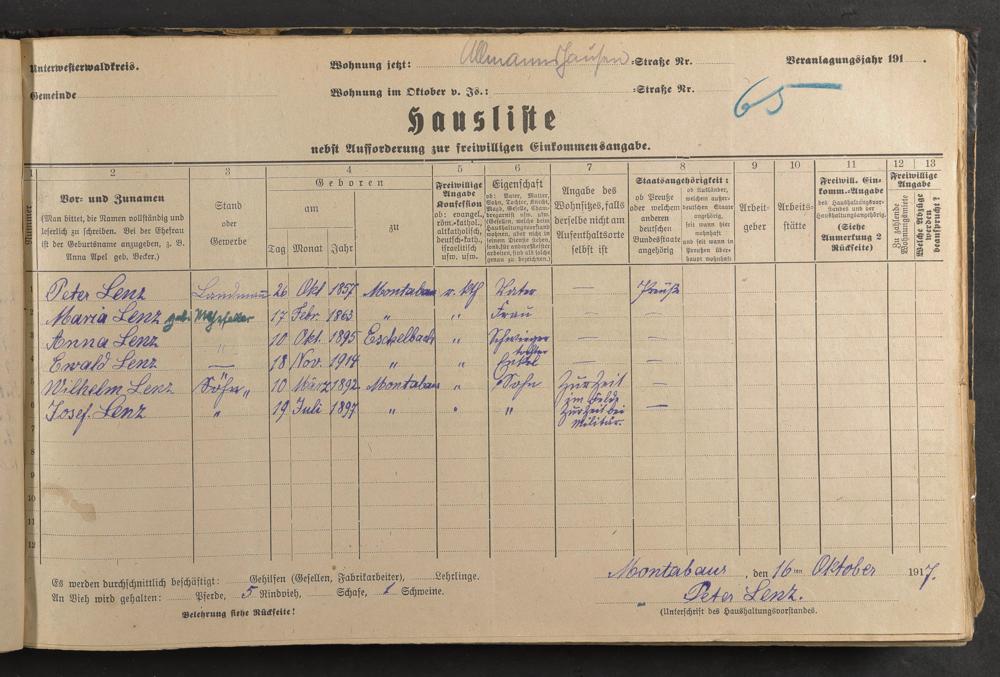 Unterwesterwaldkreis.
Wohnung jetzt: Allmannshausen =Straße Nr.
Veranlagungsjahr 191 .
Gemeinde
Wohnung im Oktober v. Js.: =Straße Nr.
65
Hausliste
nebst Aufforderung zur freiwilligen Einkommensangabe.
1 2 3 4 5 6 7 8 9 10 11 12 13
Nummer
Vor- und Zunamen
(Man bittet, die Namen vollständig und
leserlich zu schreiben. Bei der Ehefrau
ist der Geburtsname anzugeben, z. B.
Anna Apel geb. Becker.)
Stand
oder
Gewerbe
Geboren
am
Tag Monat Jahr
zu
Freiwillige
Angabe
Konfession
ob: evangel.,
röm.-kathol.,
altkatholisch,
deutsch-kath.,
israelitisch
usw. usw.
Eigenschaft
ob: Vater, Mutter,
Sohn, Tochter, Knecht,
Magd, Geselle, Cham-
bregarnist usw. usw.
(Gesellen, welche beim
Haushaltungsvorstand
wohnen, aber nicht in
seinem Dienste stehen,
sond. für andere Meister
arbeiten, sind als solche
genau zu bezeichnen.)
Angabe des
Wohnsitzes, falls
derselbe nicht am
Aufenthaltsorte
selbst ist
Staatsangehörigkeit:
ob Preuße
oder welchem
anderen
deutschen
Bundesstaate
angehörig
ob Ausländer,
welchem außer-
deutschen Staate
angehörig,
seit wann hier
wohnhaft
und seit wann in
Preußen über-
haupt wohnhaft
Arbeit-
geber
Arbeits-
stätte
Freiwill. Ein-
komm.-Angabe
des Haushaltungsvor-
standes und der
Haushaltungsangehörig.
(Siehe
Anmerkung 2
Rückseite)
Freiwillige
Angabe
Zu zahlende
Wohnungsmiete
Welche Abzüge
werden
beansprucht?
Peter Lenz Landmann 26 Okt 1857 Montabaur r. kth Vater — Preuße
Maria Lenz geb. 17 Febr. 1863 " " Frau — —
Anna Lenz " 10 Okt. 1895 Eschelbach " Schwieger
tochter — —
Ewald Lenz — 18 Nov. 1914 " " Enkel — —
5 Wilhelm Lenz Söhne " 10 März 1892 Montabaur " Sohn Zur Zeit
im Felde —
6 Josef Lenz " 19 Juli 1897 " " " Zur Zeit bei
Militär. —
7
8
9
10
11
12
Es werden durchschnittlich beschäftigt: Gehilfen (Gesellen, Fabrikarbeiter), Lehrlinge.
An Vieh wird gehalten: Pferde, 5 Rindvieh, Schafe, 1 Schweine.
Belehrung siehe Rückseite!
Montabaur, den 16ten Oktober 1917.
Peter Lenz.
(Unterschrift des Haushaltungsvorstandes.